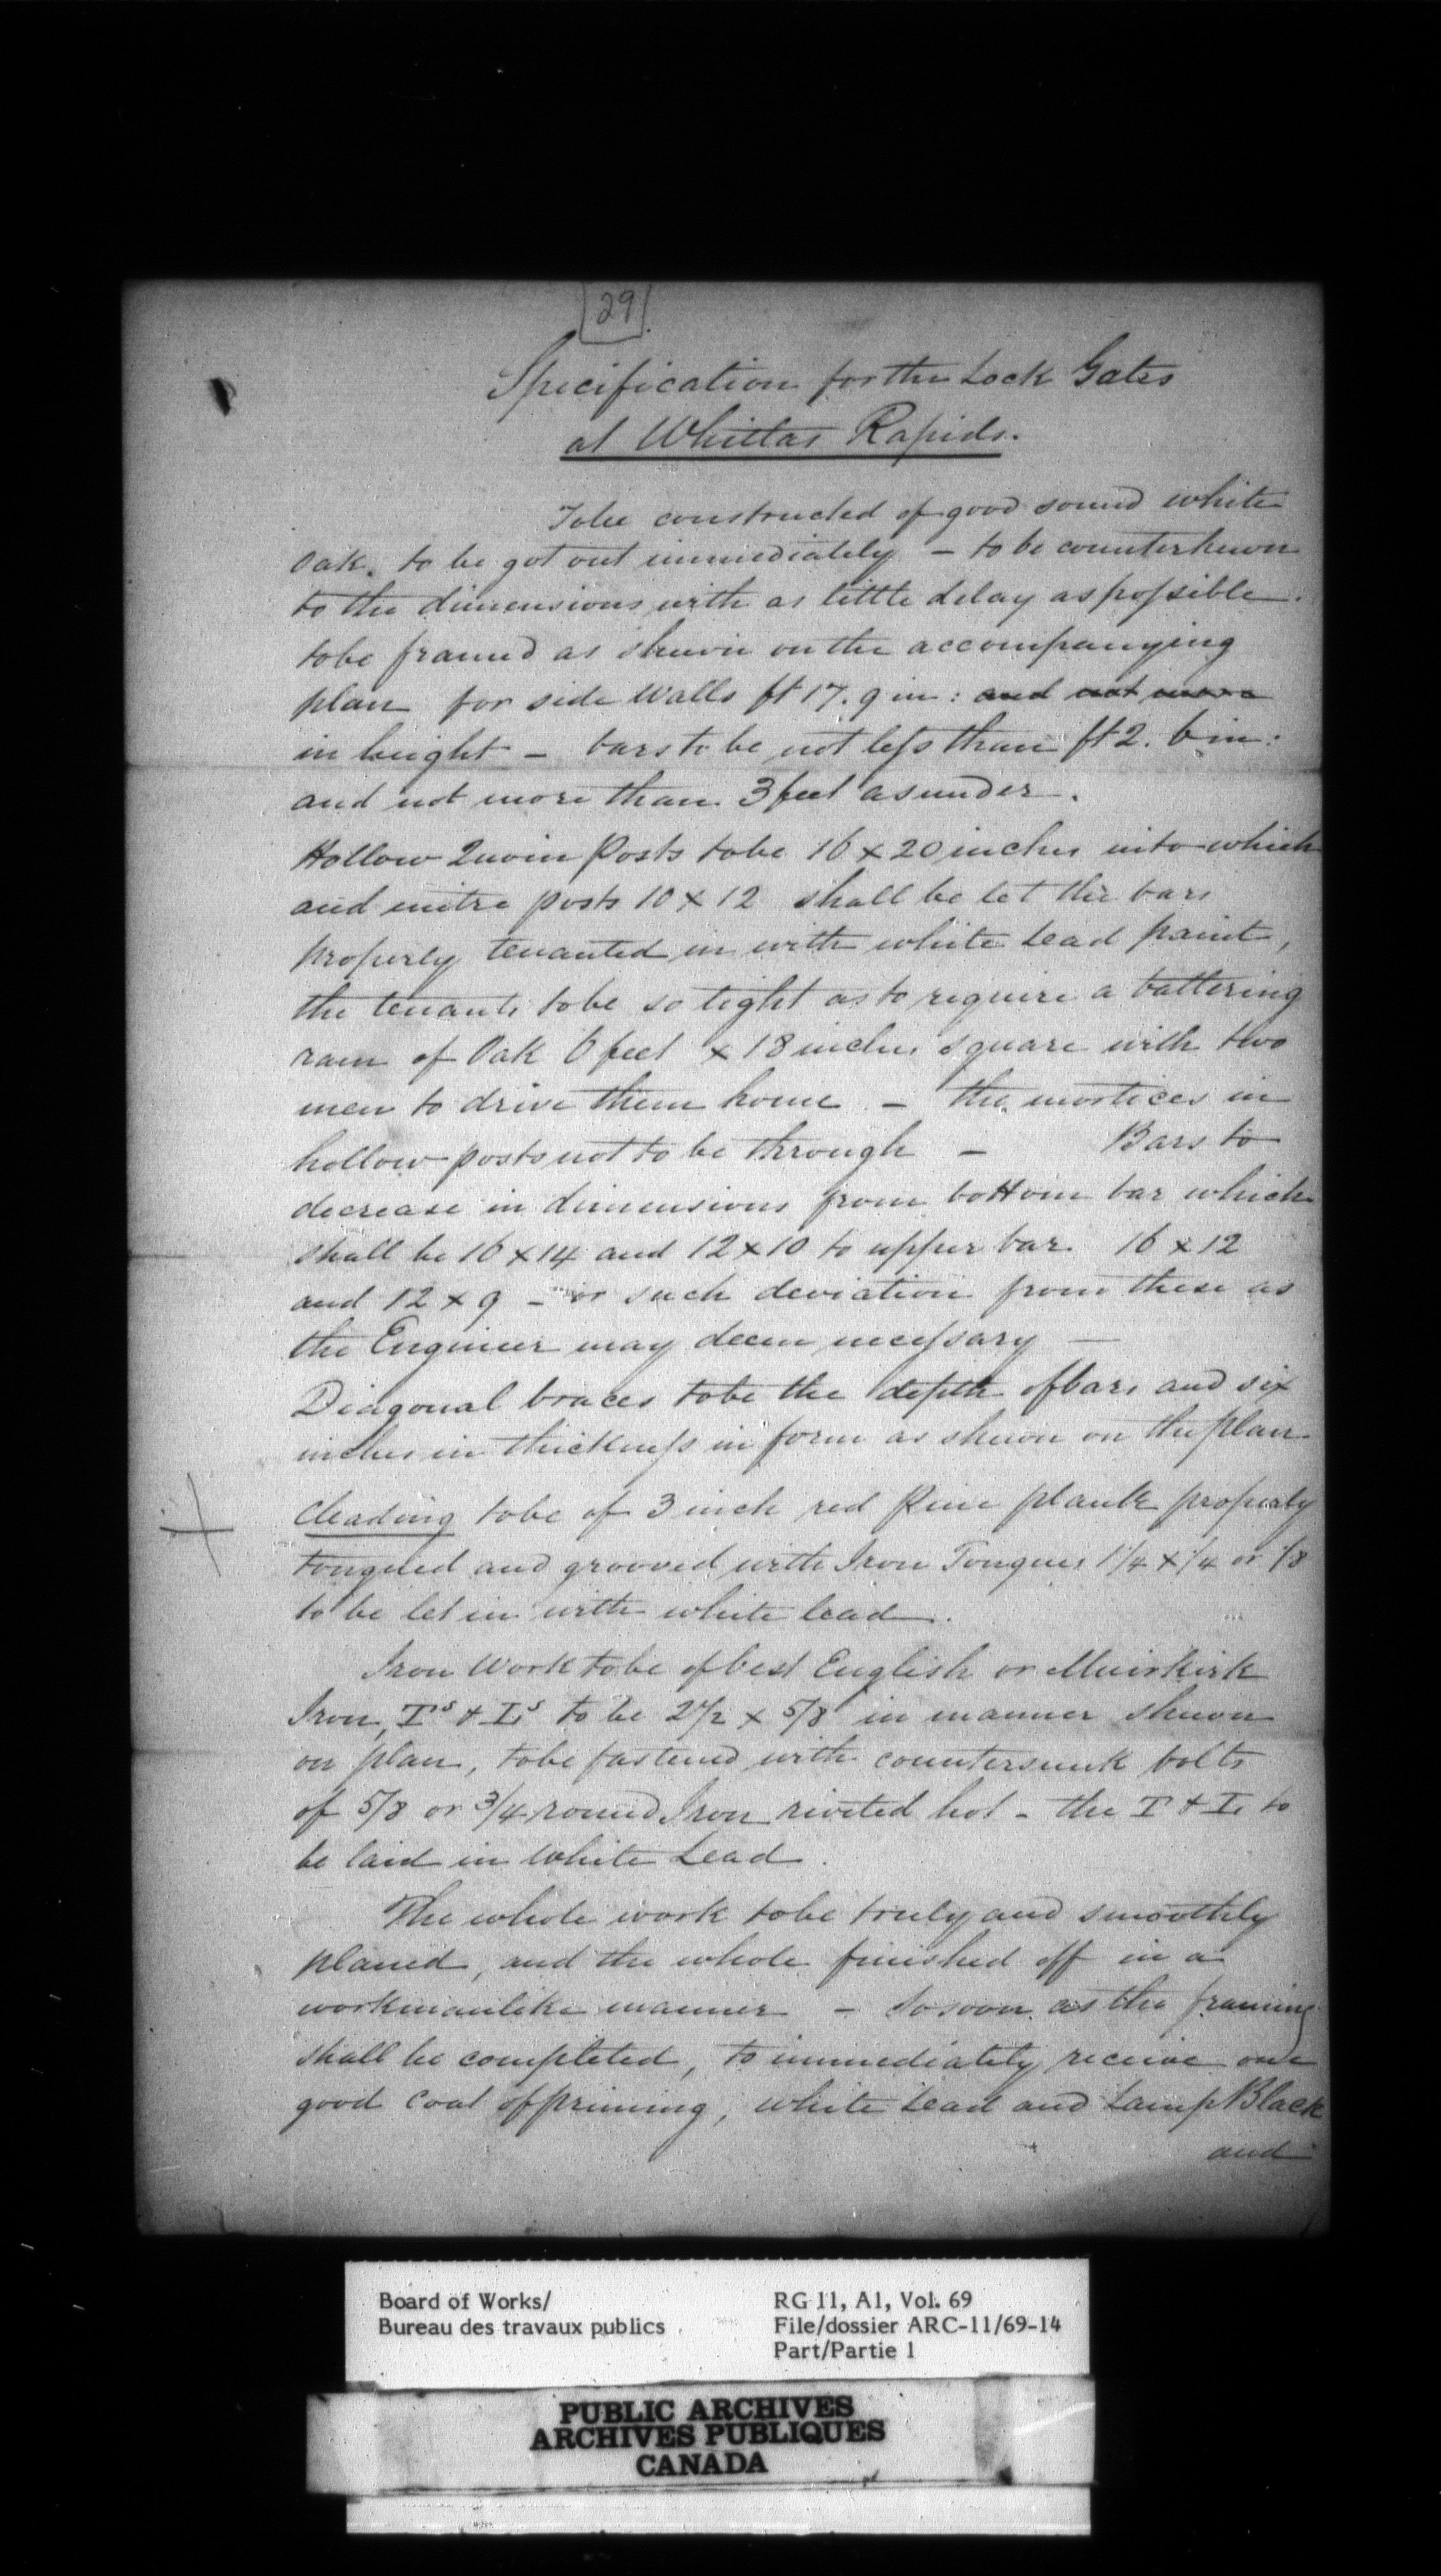 29
Specification for the Lock Gates
at Whitlas Rapids.
To be constructed of good sound white
Oak. to be got out immediately – to be counterhewn
to the dimensions with as little delay as possible.
to be framed as shewn on the accompanying
plan for side walls ft 17. 9 in: and not more
in height – bars to be not less than ft 2. 6 in:
and not more than 3 feet asunder.
Hollow Quoin Posts to be 16 x 20 inches into which
and mitre posts 10 x 12 shall be let the bars
properly tenanted in with white lead paint,
the tenants to be so tight as to require a battering
ram of Oak 6 feet x 18 inches square with two
men to drive them home – the mortices in
hollow posts not to be through – Bars to
decrease in dimensions from bottom bar which
shall be 16 x 14 and 12 x 10 to upper bar 16 x 12
and 12 x 9 – or such deviation from these as
the Engineer may deem necessary —
Diagonal braces to be the depth of bars and six
inches in thickness in form as shewn on the plan
Cleading to be of 3 inch red Pine plank properly
tongued and grooved with Iron Tongues 1 1/4 x 1/4 or 1/8
to be let in with white lead.
Iron Work to be of best English or Muirkirk
Iron, Ts & Ls to be 2 1/2 x 5/8 in manner shewn
on plan, to be fastened with countersunk bolts
of 5/8 or 3/4 round Iron riveted hot – the T & Ls to
be laid in White Lead.
The whole work to be truly and smoothly
planed, and the whole finished off in a
workmanlike manner – So soon as the framing
shall be completed, to immediately receive one
good coat of priming, white Lead and Lamp Black
and
Board of Works/
Bureau des travaux publics
RG 11, A1, Vol. 69
File/dossier ARC-11/69-14
Part/Partie 1
PUBLIC ARCHIVES
ARCHIVES PUBLIQUES
CANADA